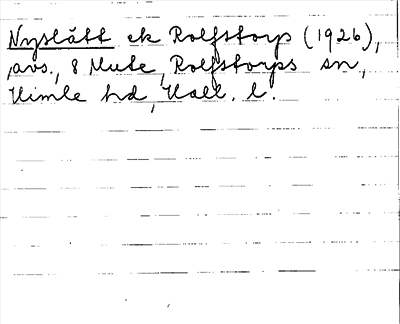 Nyslätt ek Rolfstorp (1926),
avs., 8 Mute, Rolfstorps sn,
Himle hd, Hall. l.